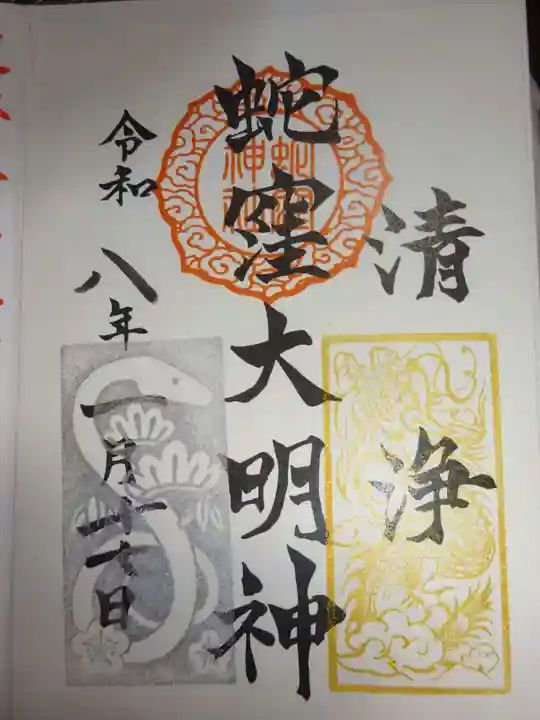 清浄
蛇窪大明神
蛇窪神社
令和八年一月十七日